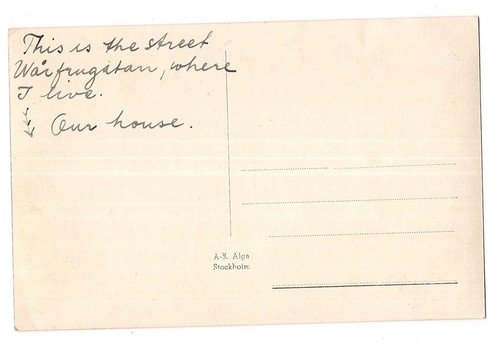 This is the street
Wårfrugatan, where
I live.
Our house.
A-B. Alga
Stockholm